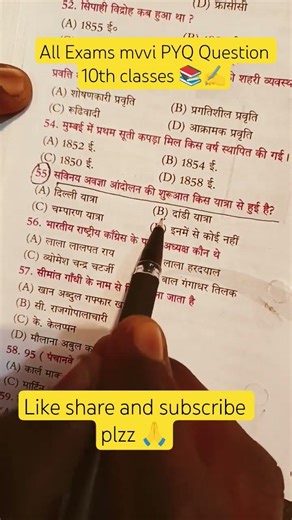 52. सिपाही विद्रोह कब हुआ था ?
(A) 1855 ई०
(D) फ्रांसीसी
All Exams mvvi PYQ Question
10th classes 📚✍️
प्रवृति
की शहरी व्यवस्
(A) शोषणकारी प्रवृति
(B) प्रगतिशील प्रवृति
(C) रूढिवादी
(D) आक्रामक प्रवृति
54. मुम्बई में प्रथम सूती कपड़ा मिल किस वर्ष स्थापित की गई।
(A) 1852 ई.
(B) 1854 ई.
(C) 1850 ई.
(D) 1858 ई.
55) सविनय अवज्ञा आंदोलन की शुरूआत किस यात्रा से हुई है?
(A) दिल्ली यात्रा
(B) दांडी यात्रा
(C) चम्पारण यात्रा
इनमें से कोई नहीं
56. भारतीय राष्ट्रीय काँग्रेस के
अध्यक्ष कौन थे
(A) लाला लालपत राय
लाला हरदयाल
(C) व्योमेश चन्द्र चटर्जी
बाल गंगाधर तिलक
57. सीमांत गाँधी के नाम से
जाना जाता है
(A) खान अब्दुल गफ्फार
(B) सी. राजगोपालाचारी
(C) के. केलप्पन
(D) मौलाना अबुल
58. 95 (
(A) कार्ल
(C)
59.
Like share and subscribe
plzz 🙏